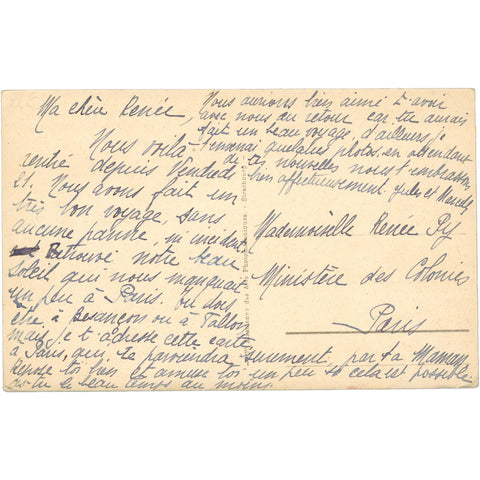 Ma chère Renée,
Nous voilà
rentré depuis Vendredi
21. Nous avons fait un
très bon voyage, sans
aucune panne, ni incident
Retrouvé notre beau
Soleil qui nous manquait
un peu à Paris. Tu dois
être à Besançon ou à
mais je t'adresse cette carte
à Paris, qui te parviendra sûrement, par ta Maman
Repose toi bien et amuse toi un peu si cela est possible.
as-tu le beau temps au moins.
Nous aurions bien aimé t'avoir
avec nous du retour car tu aurais
fait un beau voyage, d'ailleurs je
t'enverrai quelques photos, en attendant
de tes nouvelles nous t'embrassons
bien affectueusement. Jules et
Mademoiselle Renée Py
Ministère des Colonies
Paris
des Arts Photomécaniques - Strasbourg